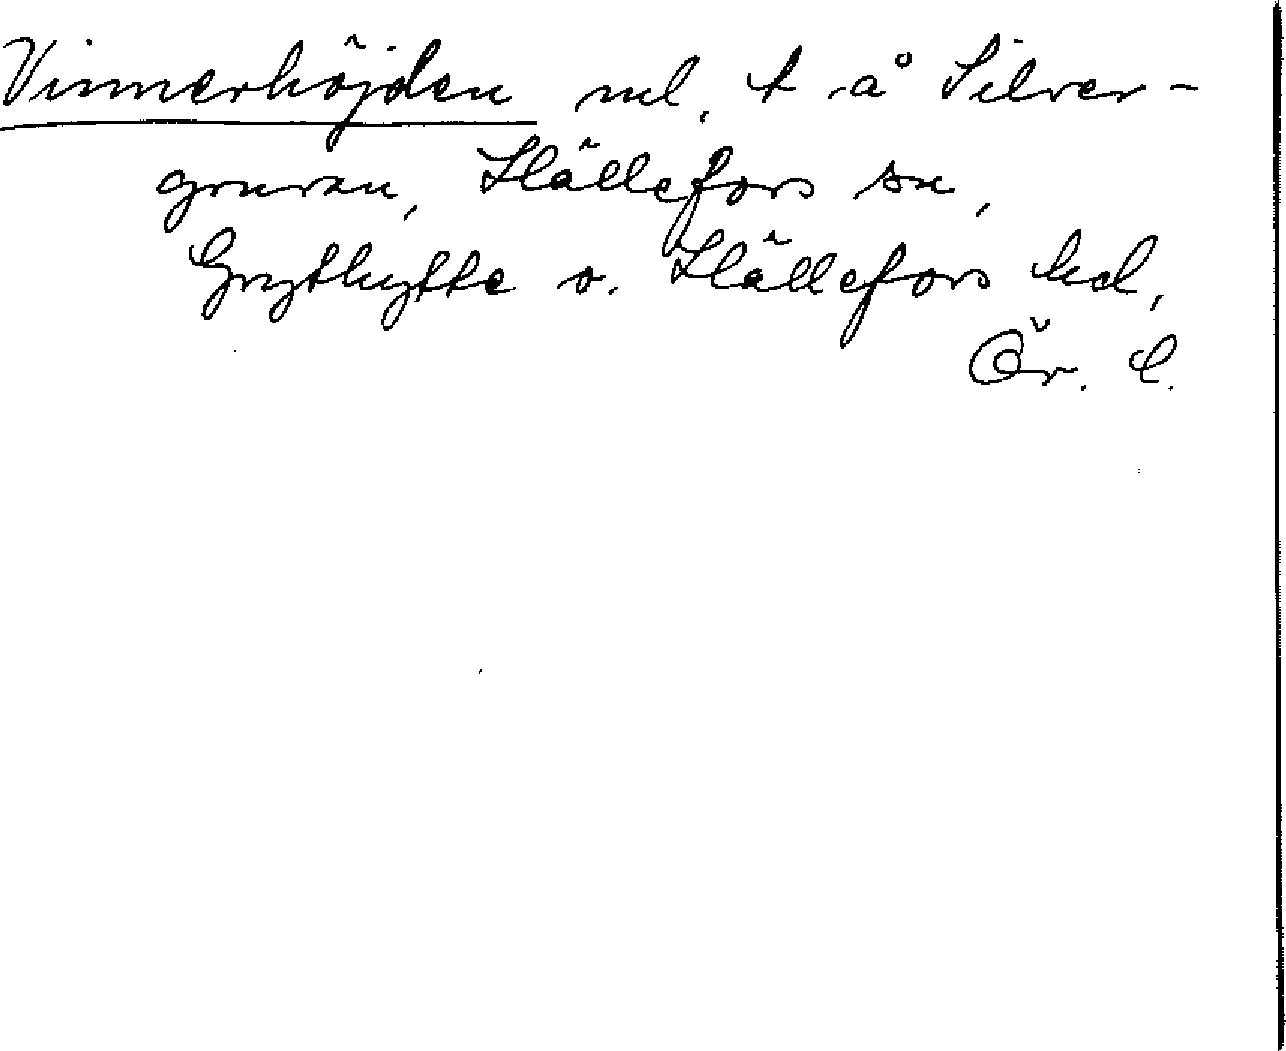 Vinnerhöjden nul. t å Silver-
gruvan, Hällefors sn,
Grythytte o. Hällefors hd,
Ör. l.